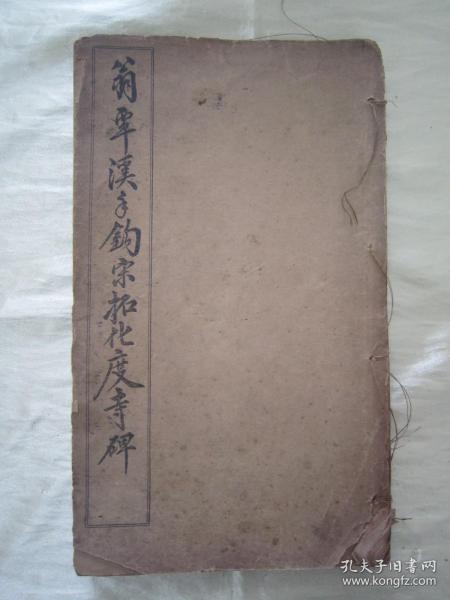 翁覃溪手鉤宋拓化度寺碑
孔夫子旧书网
www.kongfz.com